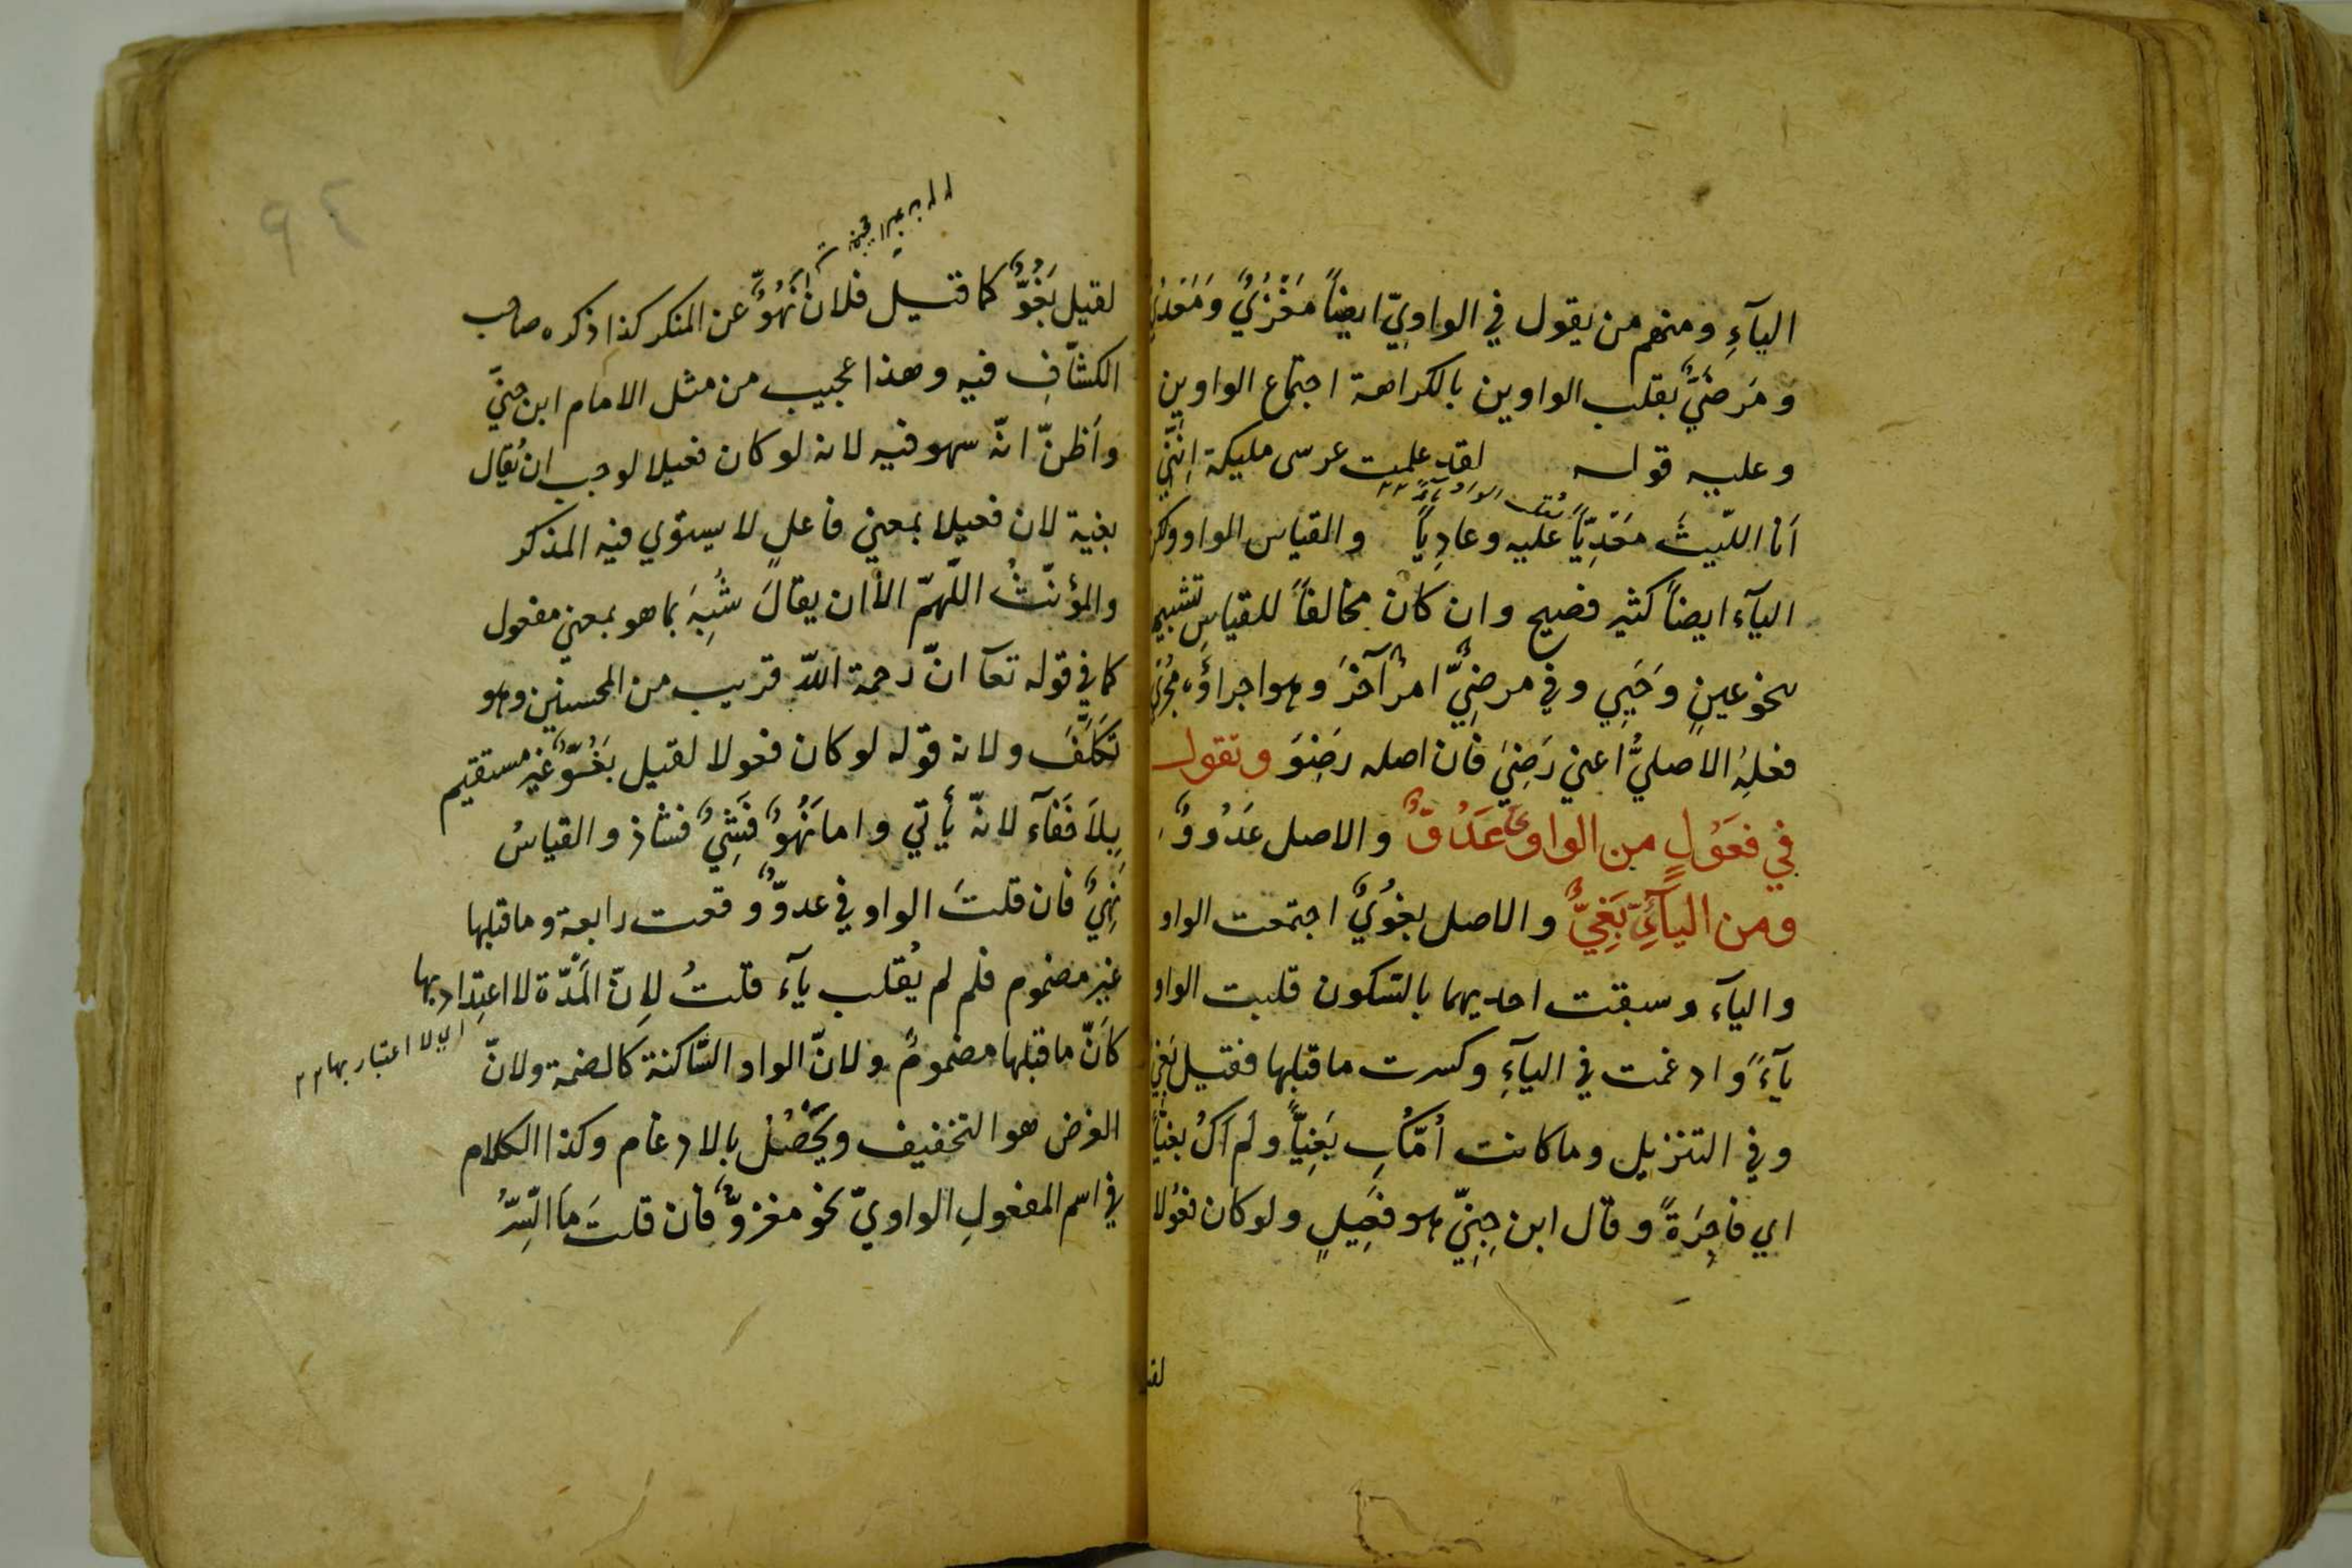 اليآءِ ومنهم من يقول في الواويّ ايضاً مَغْزُيٌّ ومَعْديٌّ
وَمَرضَيٌّ بقلب الواوين بالكراهة اجتماع الواوين
وعليه قوله لقد علمت عرسى مليكة انّني
اَنا اللّيثَ مَعْدِيّاً عليه وعادِياً والقياس الواو ولكن
اليآء ايضاً كثير فصيح وان كان مخالفاً للقياسِ تشبيها
بنحو عينٍ وحَيِي وفي مرضِيٍّ امرٌ آخرَ وهو اجراؤه مجرى
فعلِهِ الاصليُّ اعني رَضِيَ فان اصله رَضِوَ وتقول
في فعَوُلٍ من الواوي عَدُوٌّ والاصل عَدُووٌ
ومن اليآئيّ بَغِيٌّ والاصل بغوُيٌ اجتمعت الواو
واليآء وسبقت احديهما بالسّكون قلبت الواو
يآءً وادغمت في اليآءِ وكسرت ماقبلها فقيل بَغيٌّ
وفي التنزيل وما كانت اُمّكِ بَغِيّاً ولم اَكُ بغيّاً
اي فاجِرَةً وقال ابن جِنِيّ هو فعَيِلٍ ولو كان فعوُلا
لقيل
لقيل بَغُوٌّ كما قيل فلانٌ نَهُوٌّ عن المنكر كذا ذكره صاحب
الكشّافِ فيه وهذا عجيب من مثل الامام ابن جنيّ
واَظنّ انّه سهو فيه لانه لو كان فعيلا لوجب ان يُقال
بغية لان فعيلا بمعني فاعلٍ لا يستوي فيه المذكر
والمؤنّثُ اللّهمّ الاّ ان يقالَ شُبِهَ بما هو بمعني مفعول
كما في قوله تعآ انّ رحمة اللّه قريب من المحسنين وهو
تَكلّفَ ولانه قوله لو كان فعولا لقيل بَغُوٌّ غير مستقيم
بِلاَ خَفَآء لانّه يأتي واما نَهُوٌّ فَثِيٌ فشاذ والقياسُ
نَهِيٌّ فان قلتَ الواو في عدوّ وقعت رابعة وماقبلها
غير مضموم فلم لم يُقلب يآء قلتُ لِانّ المَدّة لا اعتداد بها
كاَنّ ماقبلها مضمومٌ ولانّ الواو السّاكنة كالضمة ولانّ
اي لا اعتبار بها
الغرض هو التخفيف ويحَصُلُ بالادغام وكذا الكلام
في اسم المفعولِ الواويّ نحو مغزوٌّ فأن قلتَ مَا السِّرُّ